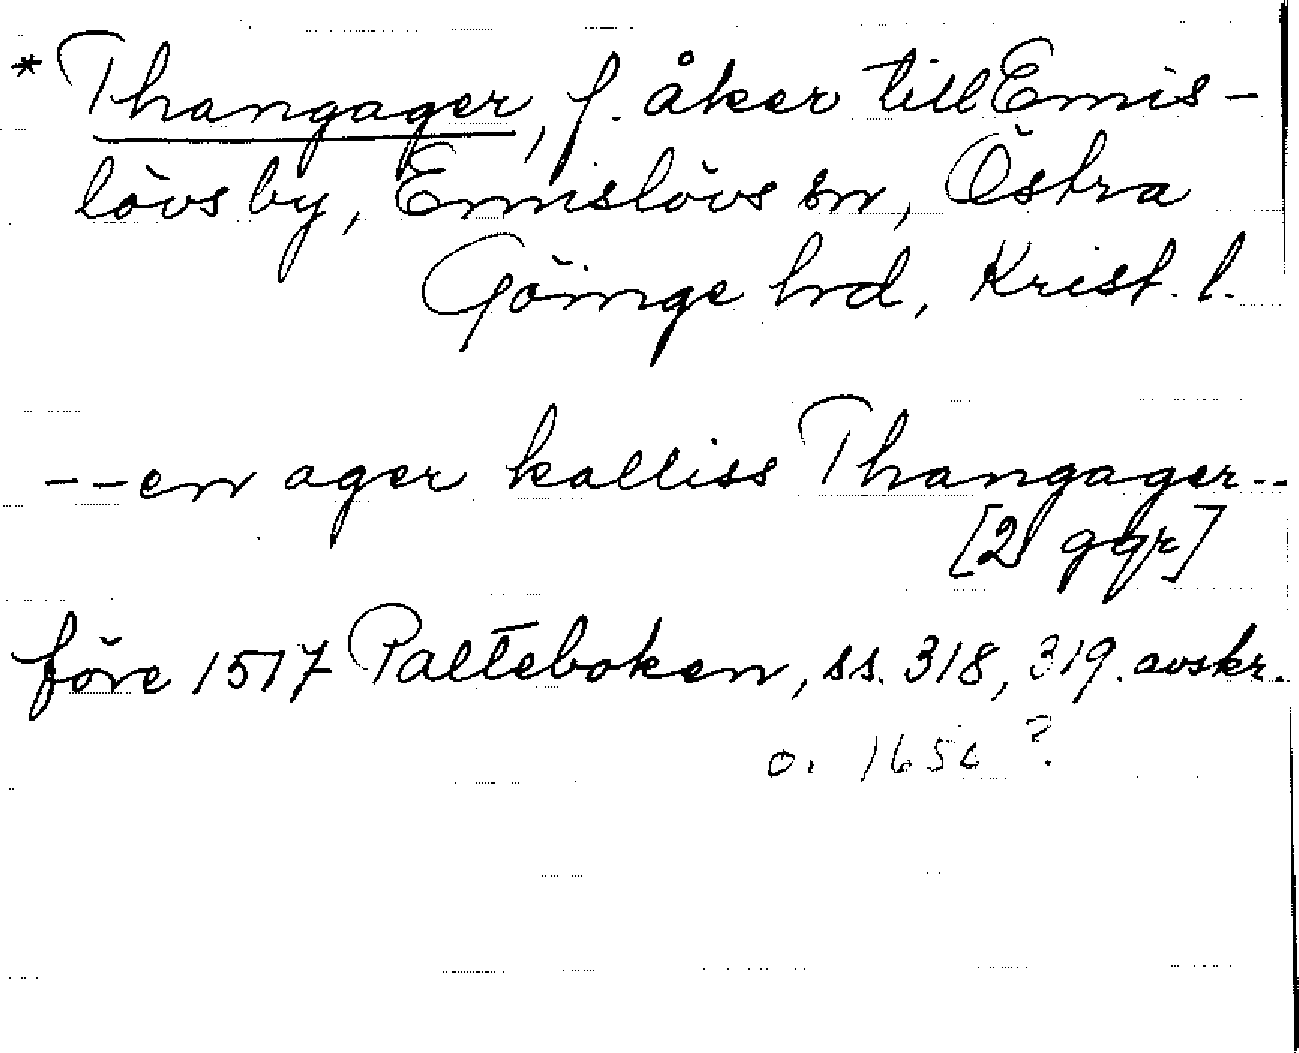 * Thangager, f. åker till Emis-
lövs by, Emislövs sn, Östra
Göinge hrd, Krist. l.
--en ager kalliss Thangager--
[2 ggr]
före 1517 Palteboken, ss. 318, 319. avskr.
o. 1650 ?